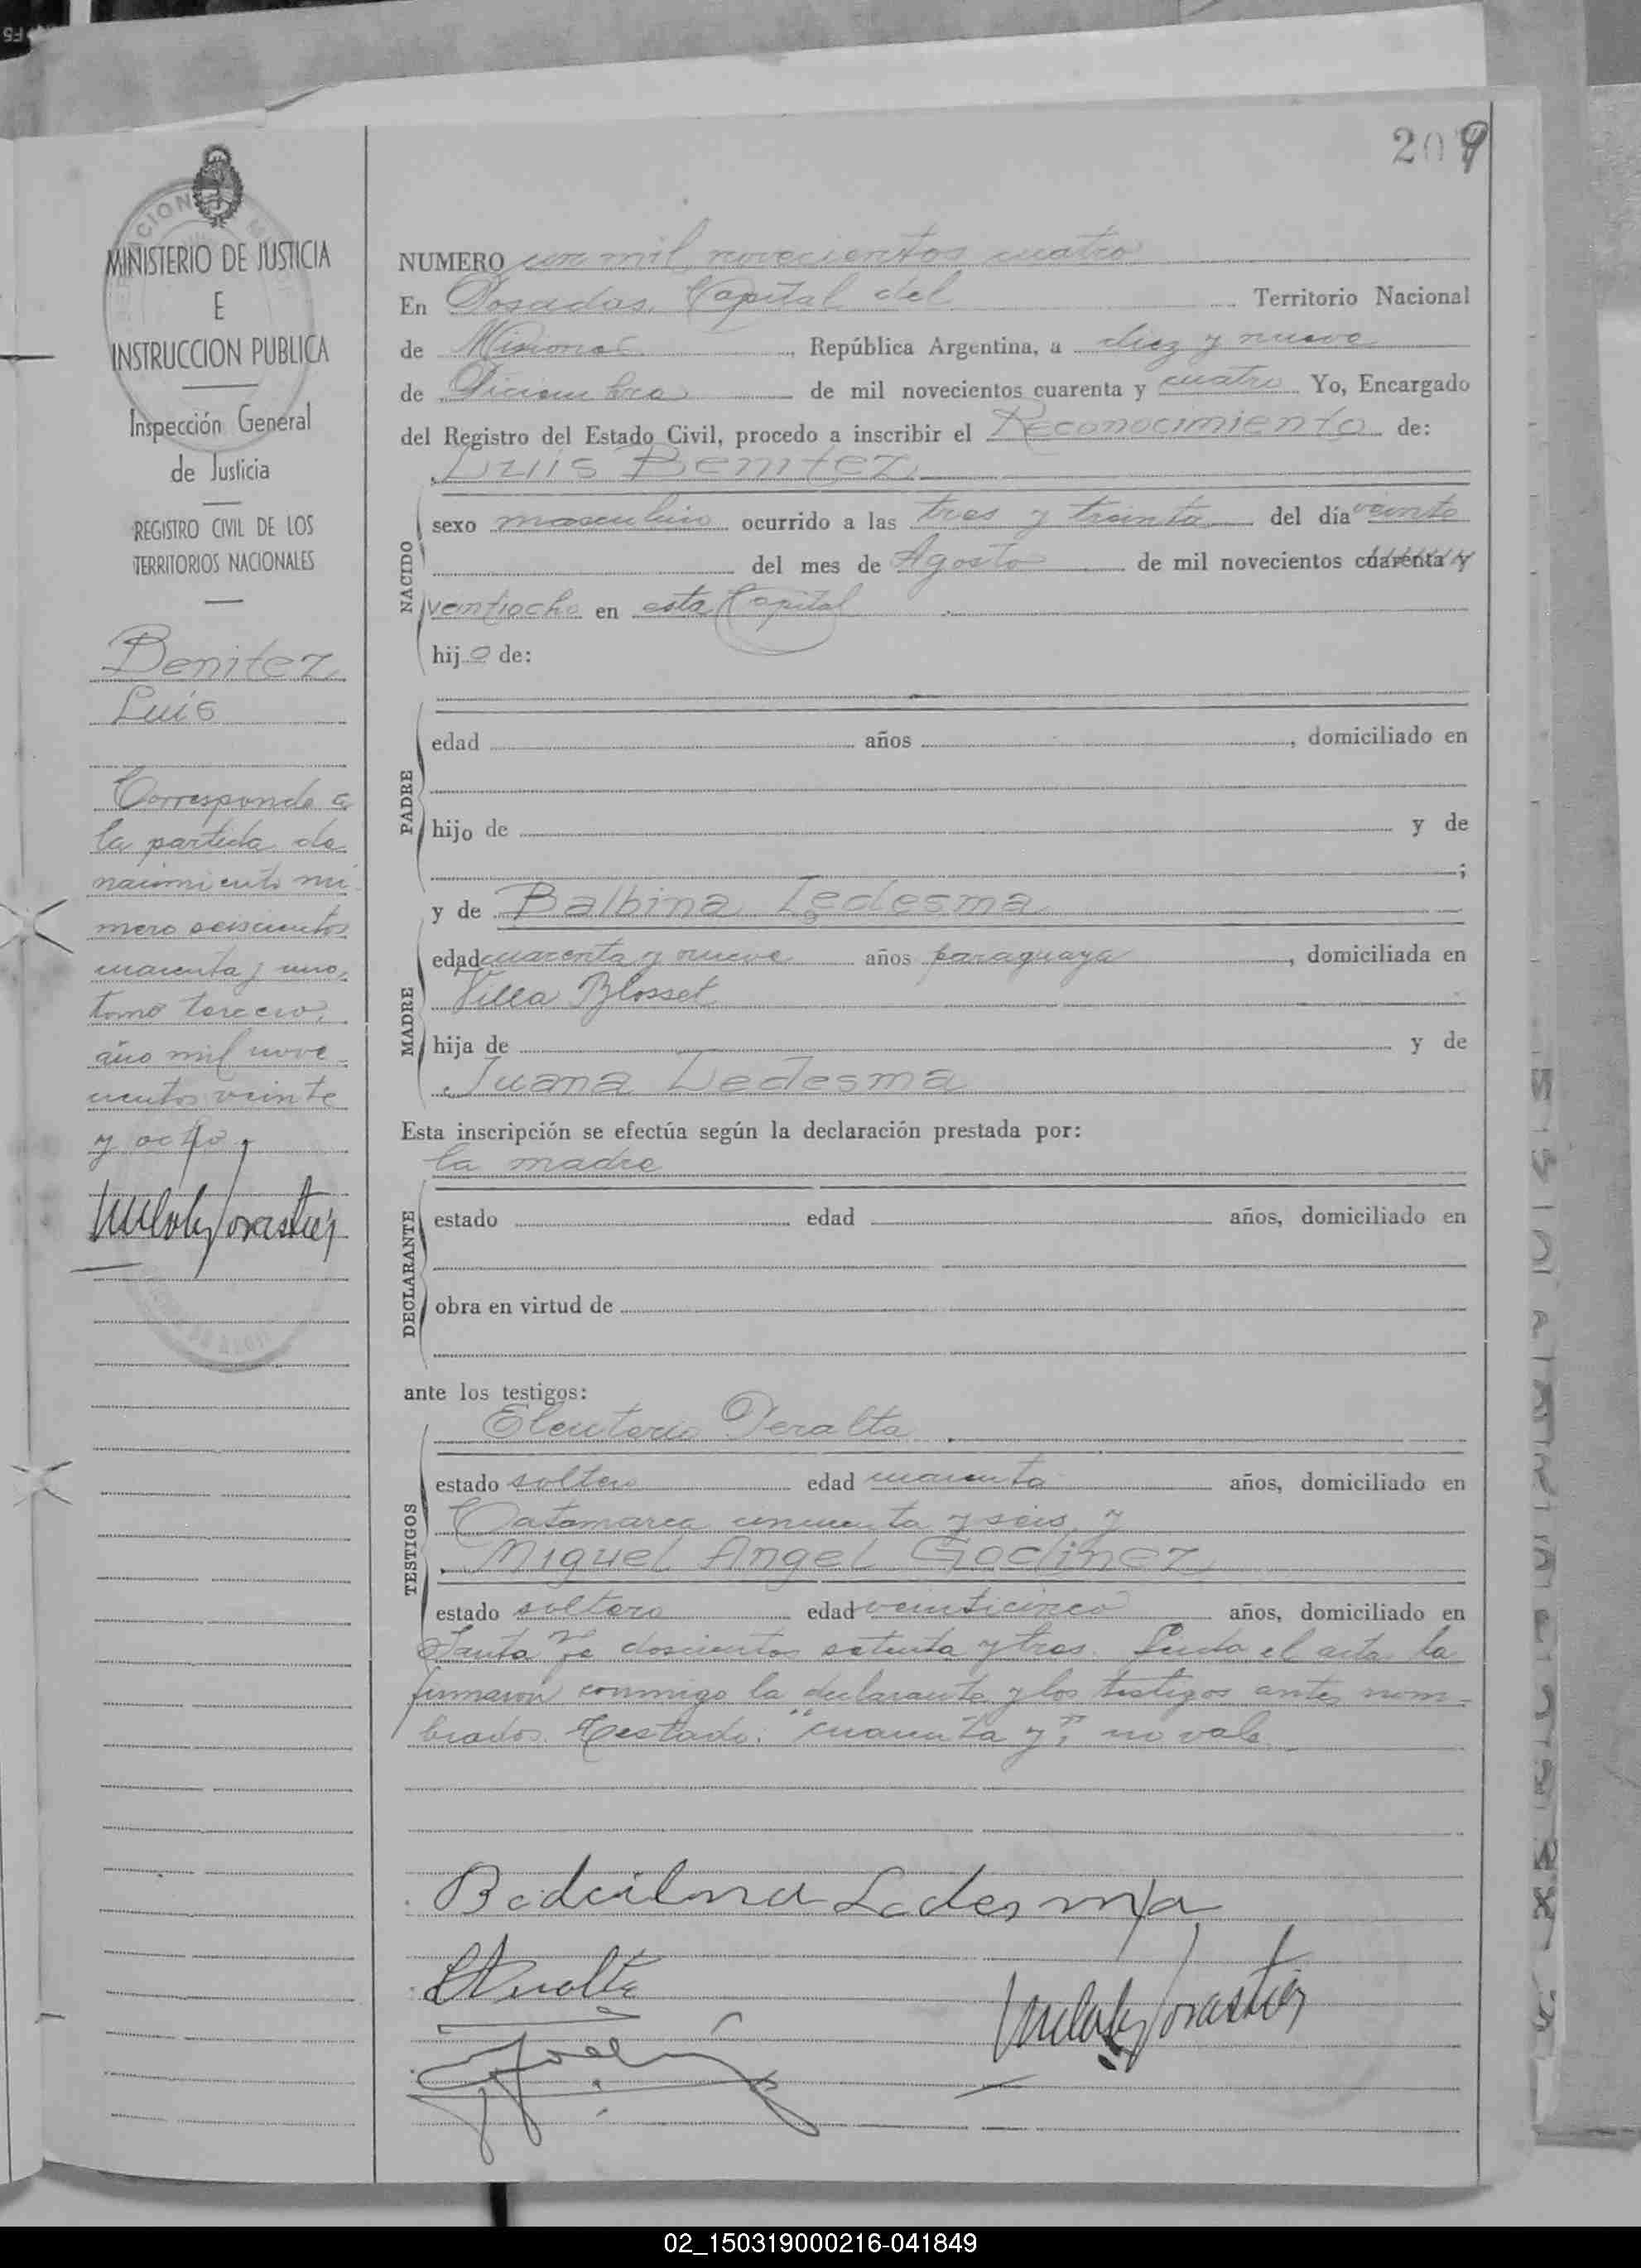 209
MINISTERIO DE JUSTICIA
E
INSTRUCCION PUBLICA
Inspección General
de Justicia
REGISTRO CIVIL DE LOS
TERRITORIOS NACIONALES
Benitez
Luis
Corresponde a
la partida de
nacimiento nú
mero seiscientos
cuarenta y uno,
tomo tercero,
año mil nove
cientos veinte
y ocho
NUMERO mil novecientos cuatro
En Posadas, Capital del Territorio Nacional
de Misiones, República Argentina, a diez y nueve
de Diciembre de mil novecientos cuarenta y cuatro Yo, Encargado
del Registro del Estado Civil, procedo a inscribir el Reconocimiento de:
Luis Benitez
NACIDO
sexo masculino ocurrido a las tres y treinta del día veinte
del mes de Agosto de mil novecientos cuarenta y
ventiocho en esta Capital
hijo de:
PADRE
edad años , domiciliado en
hijo de y de
;
MADRE
y de Balbina Ledesma
edad cuarenta y nueve años paraguaya , domiciliada en
Villa Blosset
hija de y de
Juana Ledesma
Esta inscripción se efectúa según la declaración prestada por:
la madre
DECLARANTE
estado edad años, domiciliado en
obra en virtud de
ante los testigos:
TESTIGOS
Eleuterio Peralta
estado soltero edad cuarenta años, domiciliado en
Catamarca cincuenta y seis y
Miguel Angel Godinez
estado soltero edad veinticinco años, domiciliado en
Santa Fe doscientos setenta y tres. Leida el acta la
firmaron conmigo la declarante y los testigos antes nom-
brados. Testado: "cuarenta y": no vale
Ledesma
02_150319000216-041849